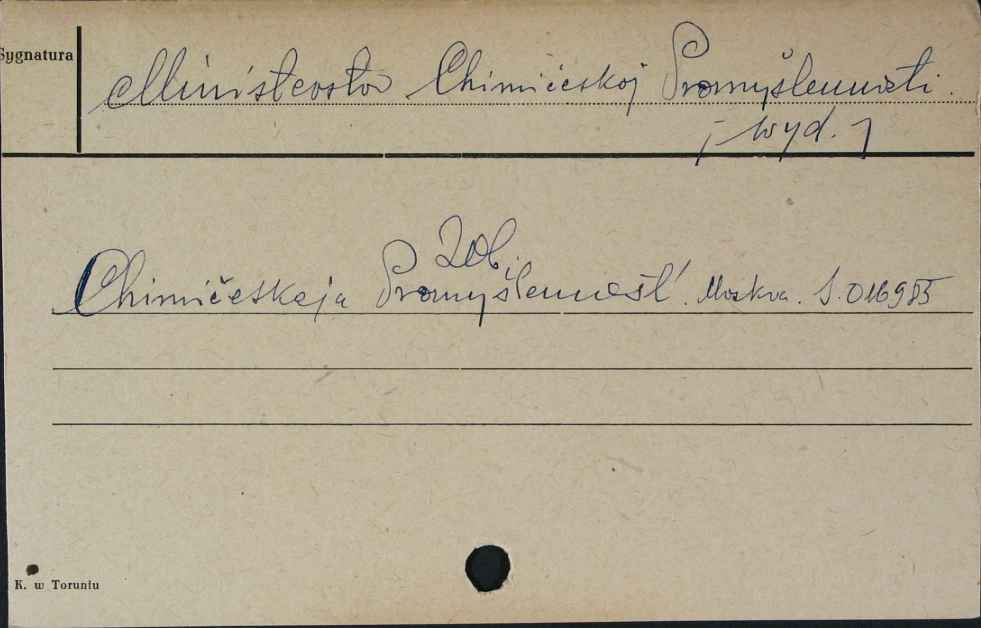 Sygnatura
Ministerstvo Chimičeskoj Promyšlennosti.
[wyd.]
Zob.
Chimičeskaja Promyšlennost'. Moskva. S. 016985
K. w Toruniu